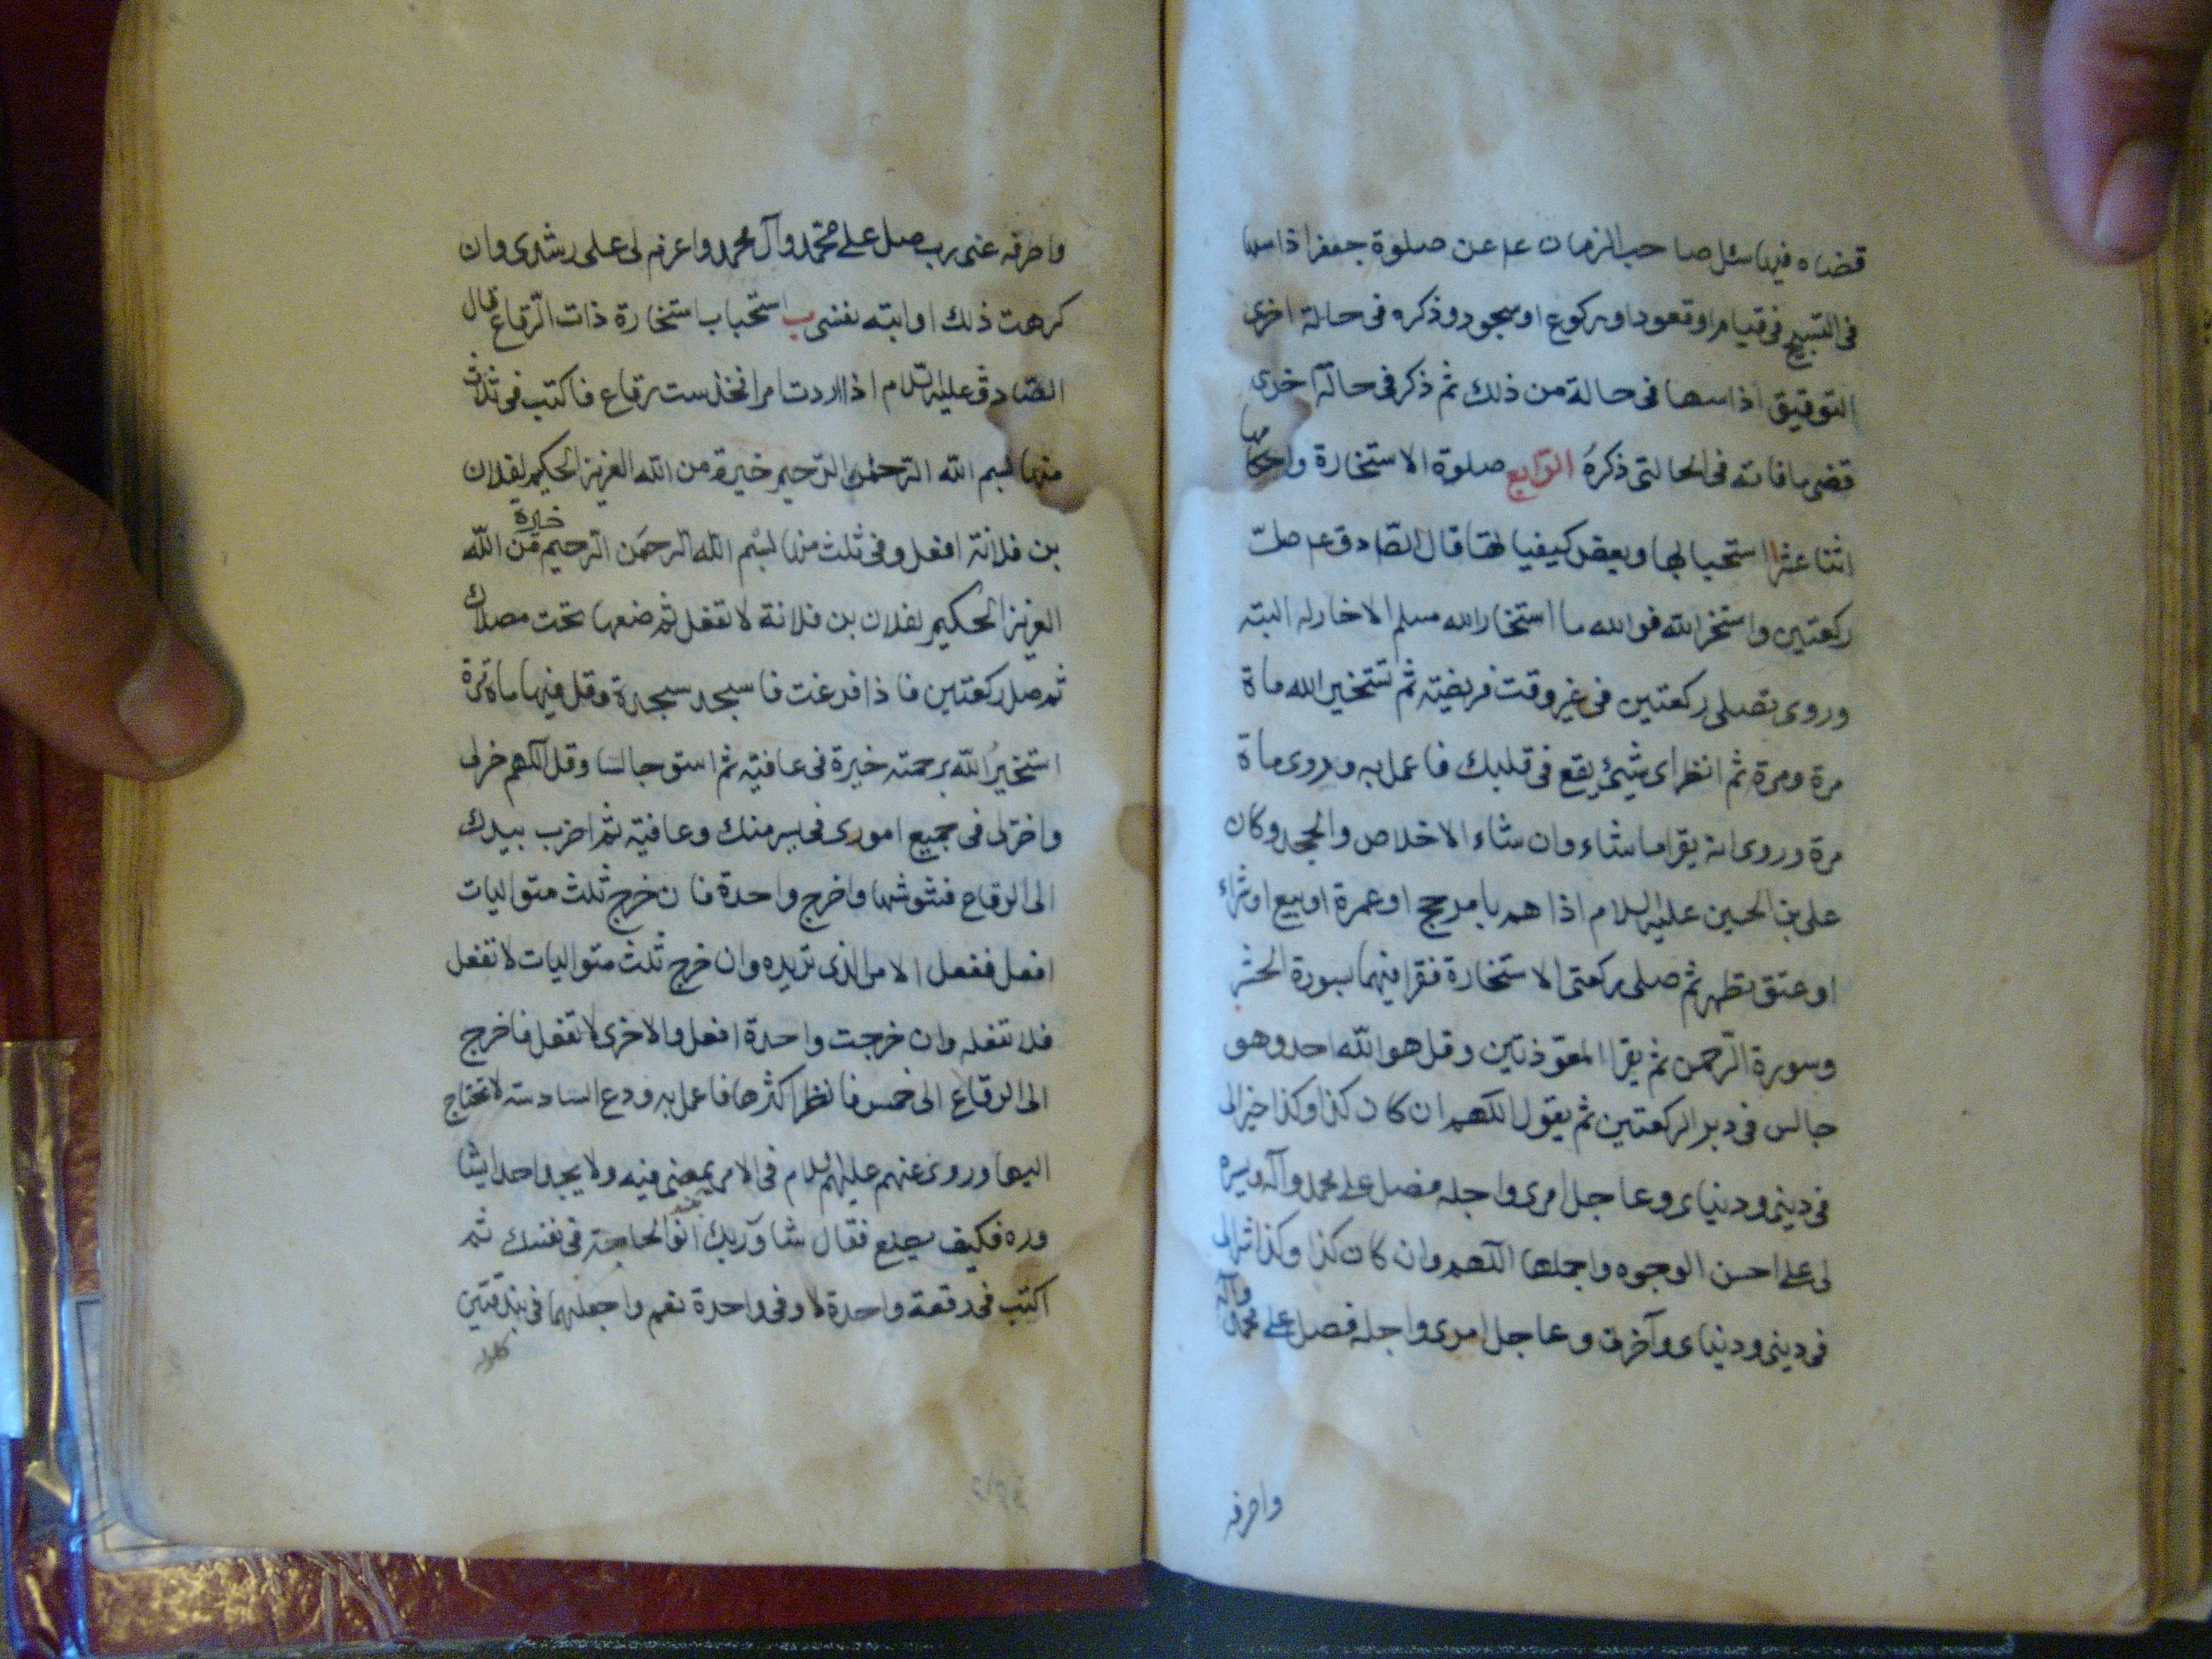 قضاه فيها سئل صاحب الزمان ع عن صلوة جعفر اذا سها
فى التسبيح فى قيام او قعود او ركوع او سجود و ذكره فى حالة اخرى
التوقيع اذا سها فى حالة من ذلك ثم ذكر فى حالة اخرى
قضى ما فاته فى الحالتى ذكرهُ الرّابع صلوة الاستخارة واحكامها
اثنا عشر ا استحبابها وبعض كيفياتها قال الصّادق ع صلّ
ركعتين واستخر الله فوالله ما استخار الله مسلم الا خار له البتة
وروى تصلى ركعتين فى غير وقت فريضته ثم تستخير الله ماة
مرة ومرة ثم انظر اى شيئ يقع فى قلبك فاعمل به وروى ماة
مرة وروى انه يقرا ما شاء وان شاء الاخلاص والجحد وكان
على بن الحسين عليه السلام اذا هم بامر حج او عمرة او بيع او شراء
او عتق تطهر ثم صلى ركعتى الاستخارة فقرا فيهما بسورة الحشر
وسورة الرّحمن ثم يقرا المعوّذتين وقل هو الله احد وهو
جالس فى دبر الركعتين ثم يقول اللهم ان كان كذا وكذا خيرا لى
فى دينى ودنياى وعاجل امرى واجله فصل على محمد وآله ويسره
لى على احسن الوجوه واجملها اللهم وان كان كذا وكذا شرا لى
فى دينى ودنياى وآخرتى وعاجل امرى واجله فصل على محمد وآله
واصرفه
واصرفه عنى رب صل على محمّد وآل محمد واعزم لى على رشدى وان
كرهت ذلك او ابته نفسى ب استحباب استخارة ذات الرّقاع قال
الصّادق عليه السّلام اذا اردت امرا فخذ ست رقاع فاكتب فى ثلاث
منها بسم الله الرّحمن الرّحيم خيرة من الله العزيز الحكيم لفلان
بن فلانة افعل وفى ثلث منها بسْم الله الرّحمَن الرّحيم خيرة مّن اللّه
العزيز الحكيم لفلان بن فلانة لا تفعل ثم ضعها تحت مصلاك
ثم صل ركعتين فاذا فرغت فاسجد سجدة وقل فيها ماة مّرة
استخيرُ اللّه برحمته خيرة فى عافيته ثم استو جالسا وقل اللّهم خر لى
واختر لى فى جميع امورى فى يسر منك وعافية ثم اضرب بيدك
الى الرقاع فشوشها واخرج واحدة فان خرج ثلث متواليات
افعل ففعل الامر الذى تريده وان خرج ثلث متواليات لا تفعل
فلا تفعله وان خرجت واحدة افعل والاخرى لا تفعل فاخرج
الى الرقاع الى خمس فانظر اكثرها فاعمل به ودع السادسة لا تحتاج
اليها وروى عنهم عليهم السلام فى الامر يمضى فيه ولا يجد احدا يشا
وره فكيف يصنع فقال شاور ربك انو الحاجة فى نفسك ثم
اكتب فى رقعة واحدة لا وفى واحدة نعم واجعلهما فى بندقتين